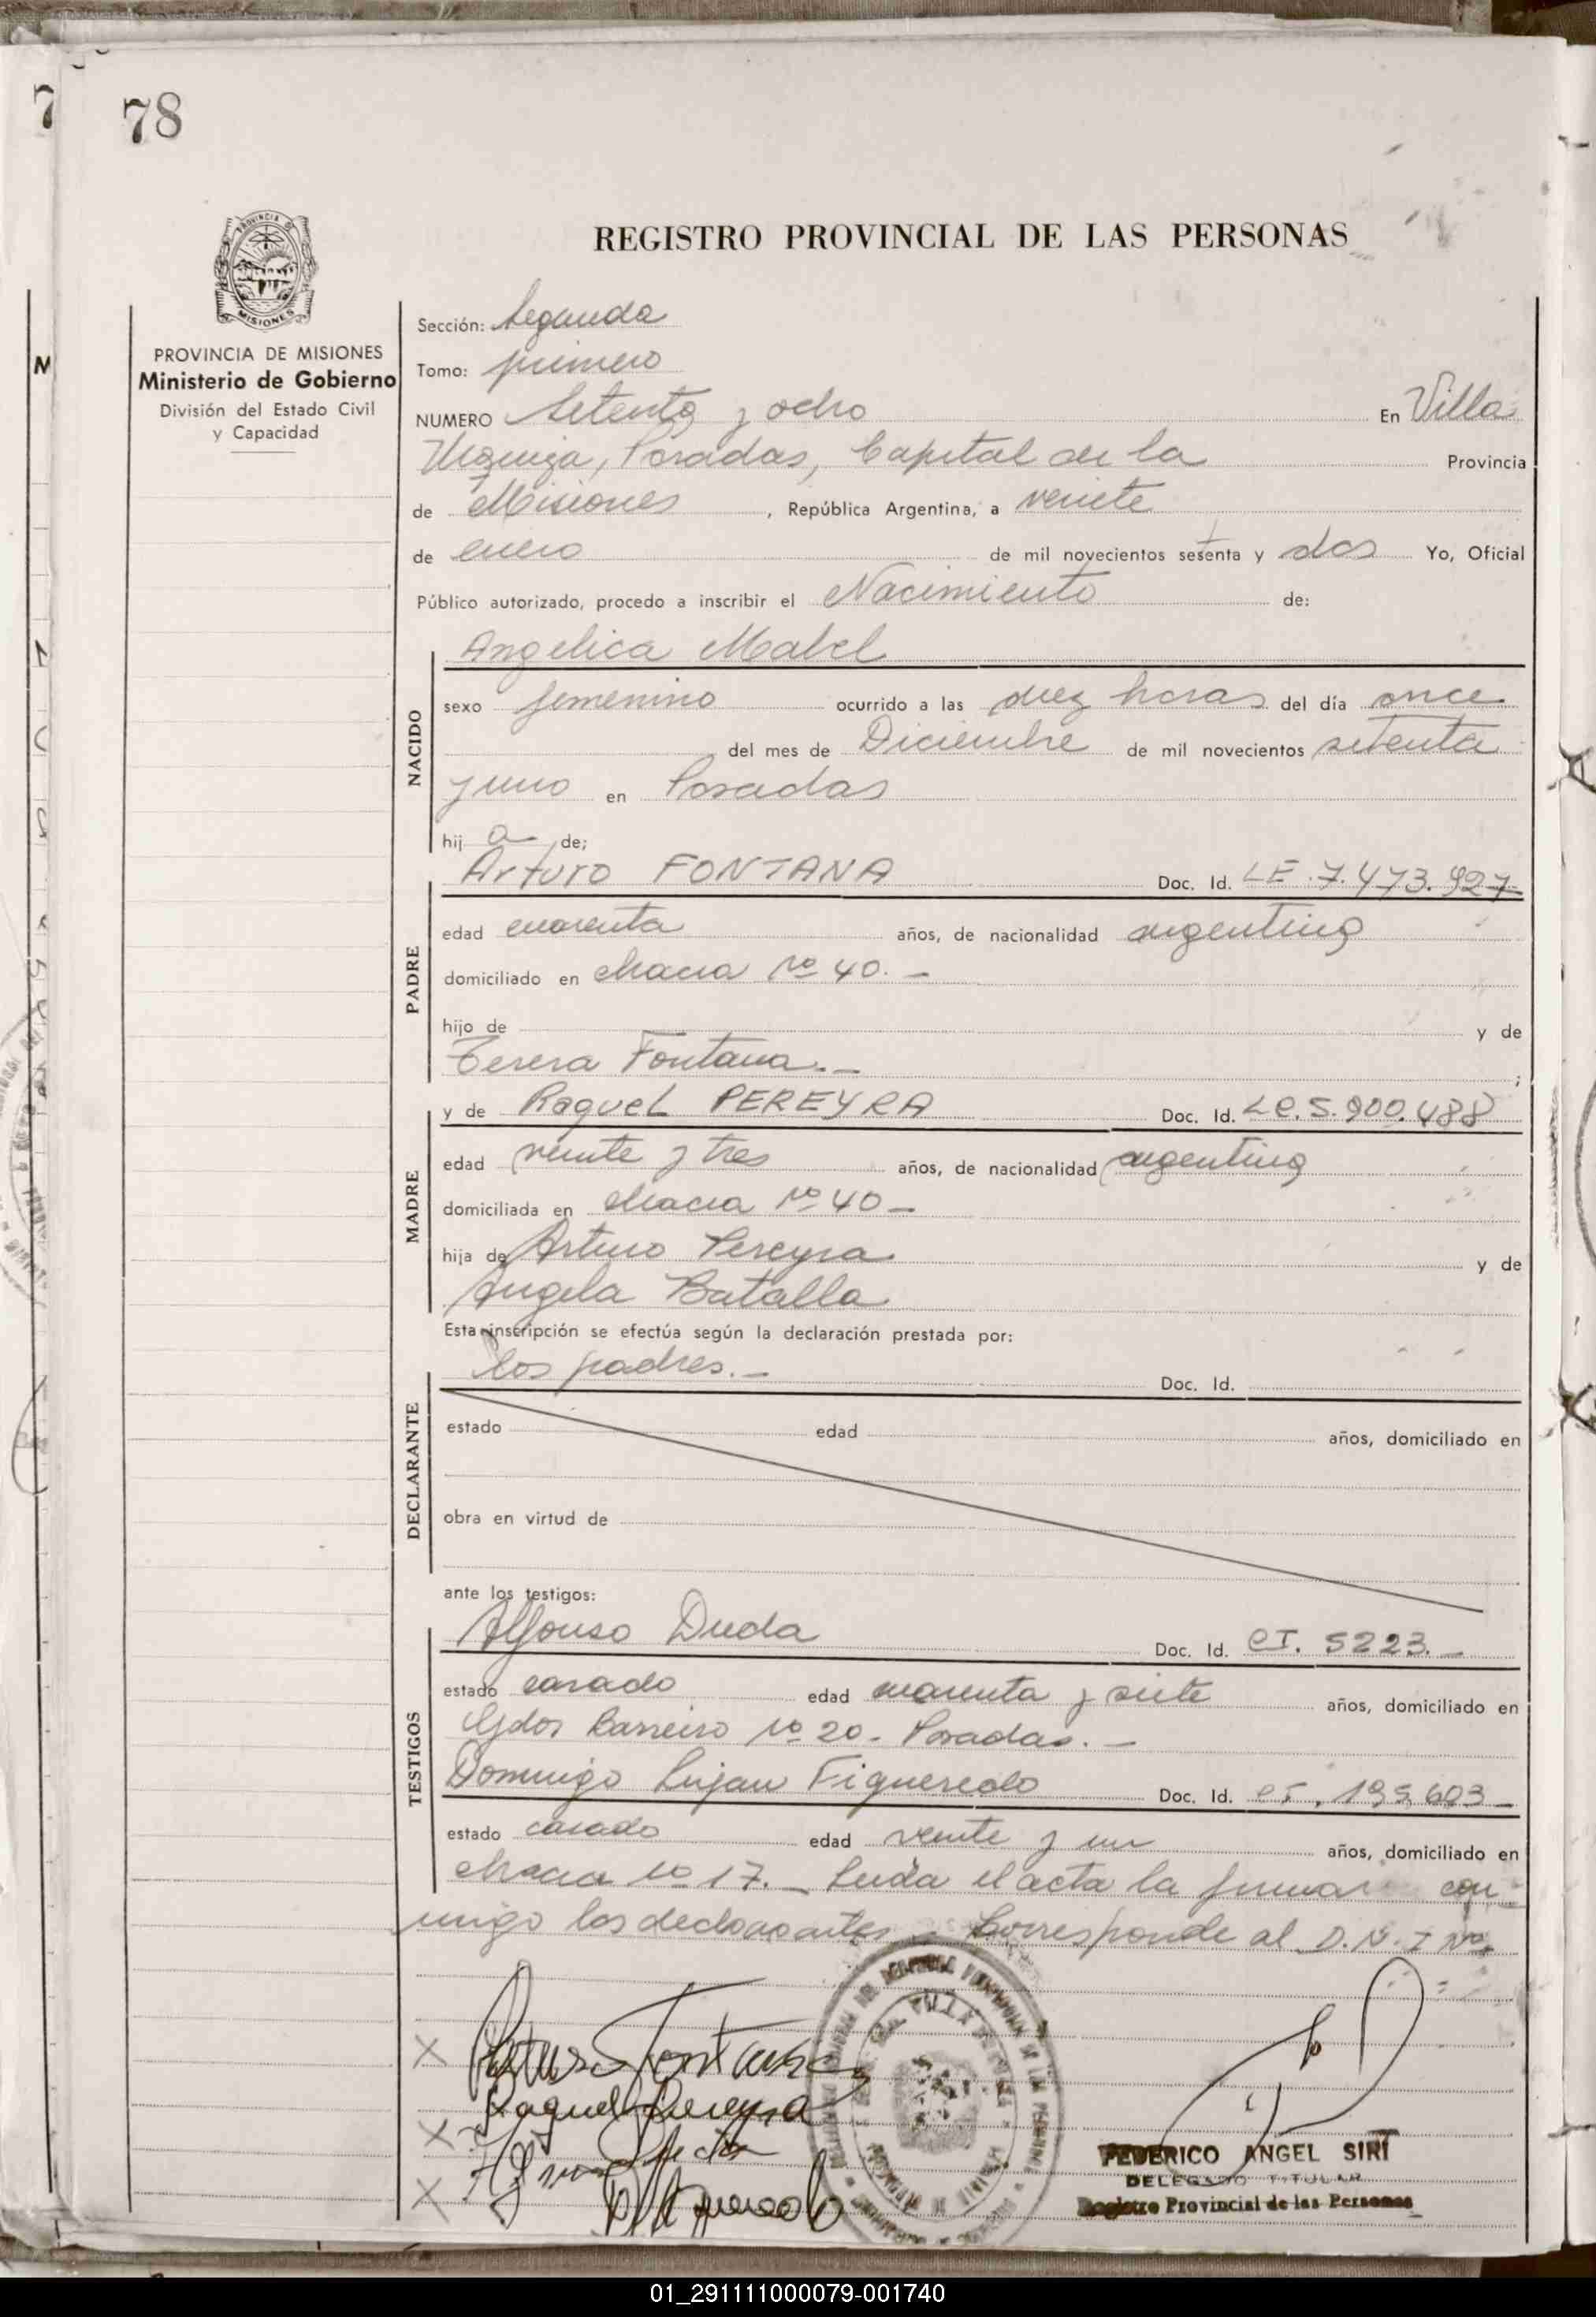 78
REGISTRO PROVINCIAL DE LAS PERSONAS
PROVINCIA
MISIONES
PROVINCIA DE MISIONES
Ministerio de Gobierno
División del Estado Civil
y Capacidad
Sección: Segunda
Tomo: primero
NUMERO Setenta y ocho En Villa
Urquiza, Posadas, Capital de la Provincia
de Misiones, República Argentina, a veinte
de enero de mil novecientos setenta y dos Yo, Oficial
Público autorizado, procedo a inscribir el Nacimiento de:
Angelica Mabel
NACIDO
sexo femenino ocurrido a las diez horas del día once
del mes de Diciembre de mil novecientos setenta
y uno en Posadas
hij a de;
Arturo FONTANA Doc. Id. LE. 7.473.927
PADRE
edad cuarenta años, de nacionalidad argentina
domiciliado en chacra nº 40. -
hijo de y de
Teresa Fontana. - ;
y de Raquel PEREYRA Doc. Id. LC. 5.900.488
MADRE
edad veinte y tres años, de nacionalidad argentina
domiciliada en chacra nº 40 -
hija de Arturo Pereyra y de
Angela Batalla
Esta inscripción se efectúa según la declaración prestada por:
los padres. - Doc. Id.
DECLARANTE
estado edad años, domiciliado en
obra en virtud de
ante los testigos:
Alfonso Duda Doc. Id. CI. 5223. -
TESTIGOS
estado casado edad cuarenta y siete años, domiciliado en
Barreiro nº 20 - Posadas. -
Domingo Lujan Figueredo Doc. Id. CI. 195.603 -
estado casado edad veinte y un años, domiciliado en
chacra nº 17. - Leida el acta la firman con
migo los declarantes - Corresponde al D.N.I Nº
Arturo Fontana
Raquel Pereyra
FEDERICO ANGEL SIRI
DELEGADO TITULAR
Registro Provincial de las Personas
01_291111000079-001740